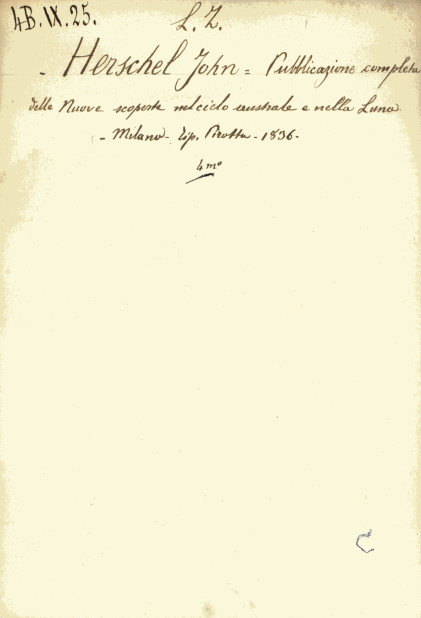 4B. IX. 25.
L. Z.
- Herschel John = Pubblicazione completa
delle Nuove scoperte nel cielo australe e nella Luna
- Milano - tip. Pirotta - 1836 -
4mo